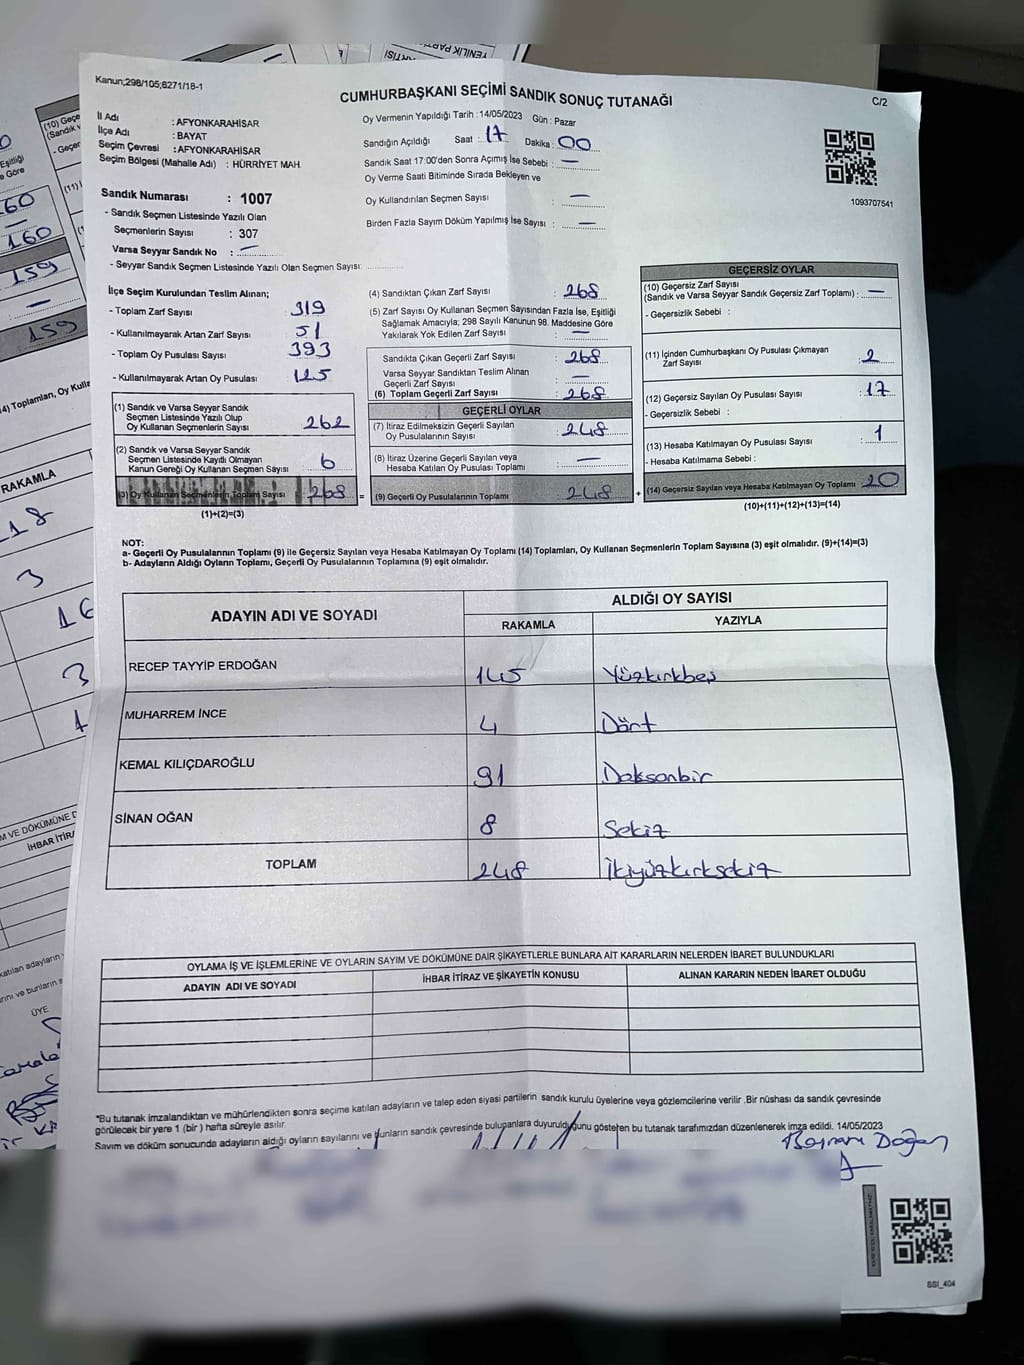 Kanun;298/105;6271/18-1
CUMHURBAŞKANI SEÇİMİ SANDIK SONUÇ TUTANAĞI
C/2
İl Adı : AFYONKARAHİSAR
İlçe Adı : BAYAT
Seçim Çevresi : AFYONKARAHİSAR
Seçim Bölgesi (Mahalle Adı) : HÜRRİYET MAH.
Oy Vermenin Yapıldığı Tarih : 14/05/2023 Gün : Pazar
Sandığın Açıldığı Saat : 17 Dakika : 00
Sandık Saat 17:00'den Sonra Açımış İse Sebebi : —
Oy Verme Saati Bitiminde Sırada Bekleyen ve
Oy Kullandırılan Seçmen Sayısı : —
Birden Fazla Sayım Döküm Yapılmış İse Sayısı : —
1093707541
Sandık Numarası : 1007
- Sandık Seçmen Listesinde Yazılı Olan
Seçmenlerin Sayısı : 307
Varsa Seyyar Sandık No : —
- Seyyar Sandık Seçmen Listesinde Yazılı Olan Seçmen Sayısı:
İlçe Seçim Kurulundan Teslim Alınan;
- Toplam Zarf Sayısı 319
- Kullanılmayarak Artan Zarf Sayısı 51
- Toplam Oy Pusulası Sayısı 393
- Kullanılmayarak Artan Oy Pusulası 125
(1) Sandık ve Varsa Seyyar Sandık
Seçmen Listesinde Yazılı Olup
Oy Kullanan Seçmenlerin Sayısı 262
(2) Sandık ve Varsa Seyyar Sandık
Seçmen Listesinde Kayıtlı Olmayan
Kanun Gereği Oy Kullanan Seçmen Sayısı 6
(3) Oy Kullanan Seçmenlerin Toplam Sayısı 268 =
(1)+(2)=(3)
(4) Sandıktan Çıkan Zarf Sayısı : 268
(5) Zarf Sayısı Oy Kullanan Seçmen Sayısından Fazla İse, Eşitliği
Sağlamak Amacıyla; 298 Sayılı Kanunun 98. Maddesine Göre
Yakılarak Yok Edilen Zarf Sayısı : —
Sandıkta Çıkan Geçerli Zarf Sayısı : 268
Varsa Seyyar Sandıktan Teslim Alınan
Geçerli Zarf Sayısı : —
(6) Toplam Geçerli Zarf Sayısı : 268
GEÇERLİ OYLAR
(7) İtiraz Edilmeksizin Geçerli Sayılan
Oy Pusulalarının Sayısı : 248
(8) İtiraz Üzerine Geçerli Sayılan veya
Hesaba Katılan Oy Pusulası Toplamı : —
(9) Geçerli Oy Pusulalarının Toplamı 248 +
GEÇERSİZ OYLAR
(10) Geçersiz Zarf Sayısı
(Sandık ve Varsa Seyyar Sandık Geçersiz Zarf Toplamı) : —
- Geçersizlik Sebebi :
(11) İçinden Cumhurbaşkanı Oy Pusulası Çıkmayan
Zarf Sayısı : 2
(12) Geçersiz Sayılan Oy Pusulası Sayısı : 17
- Geçersizlik Sebebi :
(13) Hesaba Katılmayan Oy Pusulası Sayısı : 1
- Hesaba Katılmama Sebebi :
(14) Geçersiz Sayılan veya Hesaba Katılmayan Oy Toplamı 20
(10)+(11)+(12)+(13)=(14)
NOT:
a- Geçerli Oy Pusulalarının Toplamı (9) ile Geçersiz Sayılan veya Hesaba Katılmayan Oy Toplamı (14) Toplamları, Oy Kullanan Seçmenlerin Toplam Sayısına (3) eşit olmalıdır. (9)+(14)=(3)
b- Adayların Aldığı Oyların Toplamı, Geçerli Oy Pusulalarının Toplamına (9) eşit olmalıdır.
ADAYIN ADI VE SOYADI
ALDIĞI OY SAYISI
RAKAMLA YAZIYLA
RECEP TAYYİP ERDOĞAN 145 Yüzkırkbeş
MUHARREM İNCE 4 Dört
KEMAL KILIÇDAROĞLU 91 Doksanbir
SİNAN OĞAN 8 Sekiz
TOPLAM 248 İkiyüzkırksekiz
OYLAMA İŞ VE İŞLEMLERİNE VE OYLARIN SAYIM VE DÖKÜMÜNE DAİR ŞİKAYETLERLE BUNLARA AİT KARARLARIN NELERDEN İBARET BULUNDUKLARI
ADAYIN ADI VE SOYADI İHBAR İTİRAZ VE ŞİKAYETİN KONUSU ALINAN KARARIN NEDEN İBARET OLDUĞU
*Bu tutanak imzalandıktan ve mühürlendikten sonra seçime katılan adayların ve talep eden siyasi partilerin sandık kurulu üyelerine veya gözlemcilerine verilir .Bir nüshası da sandık çevresinde
görülecek bir yere 1 (bir ) hafta süreyle asılır.
Sayım ve döküm sonucunda adayların aldığı oyların sayılarını ve bunların sandık çevresinde bulunanlara duyurulduğunu gösteren bu tutanak tarafımızdan düzenlenerek imza edildi. 14/05/2023
Bayram Doğan
SSI_404
YENİLİK
160
—
160
159
—
159
RAKAMLA
3
16
3
1
İHBAR İTİRA
ÜYE